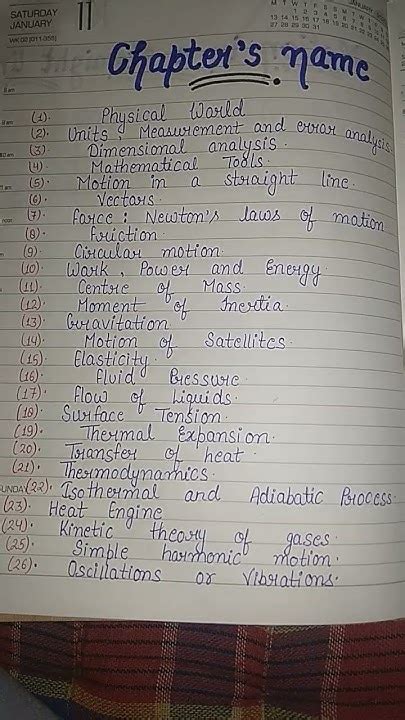 SATURDAY
JANUARY
11
WK 02 (011-355)
JANUARY
M T W T F S S
13 14 15 16 17 18
27 28 29 30 31
Chapter's name
(1). Physical World
(2). Units, Measurement and error analysis
(3). Dimensional analysis.
(4) Mathematical Tools.
(5). Motion in a straight line.
(6). Vectors.
(7). Force: Newton's laws of motion
(8). Friction.
(9). Circular motion.
(10). Work, Power and Energy.
(11). Centre of Mass.
(12). Moment of Inertia.
(13). Gravitation.
(14). Motion of Satellites.
(15). Elasticity.
(16). Fluid Pressure.
(17). Flow of Liquids.
(18). Surface Tension.
(19). Thermal Expansion.
(20). Transfer of heat.
(21). Thermodynamics.
SUNDAY
(22). Isothermal and Adiabatic Process.
(23). Heat Engine
(24). Kinetic theory of gases.
(25). Simple harmonic motion.
(26). Oscillations or Vibrations.